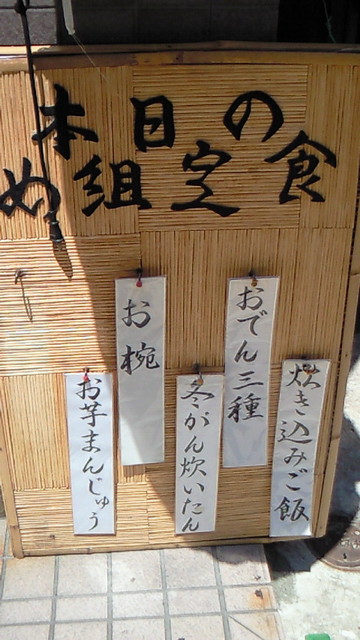 本日の
め組定食
炊き込みご飯
おでん三種
冬がん炊いたん
お椀
お芋まんじゅう